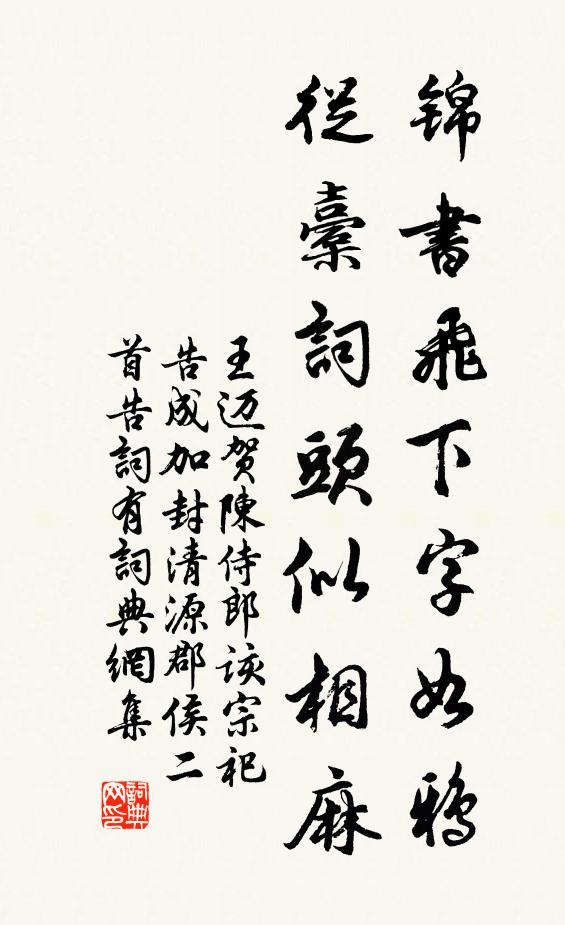 锦書飛下字如鴉
從稾詞頭似相麻
王迈贺陳侍郎该宗祀
告成加封清源郡侯二
首告詞有詞典網集
詞典网印